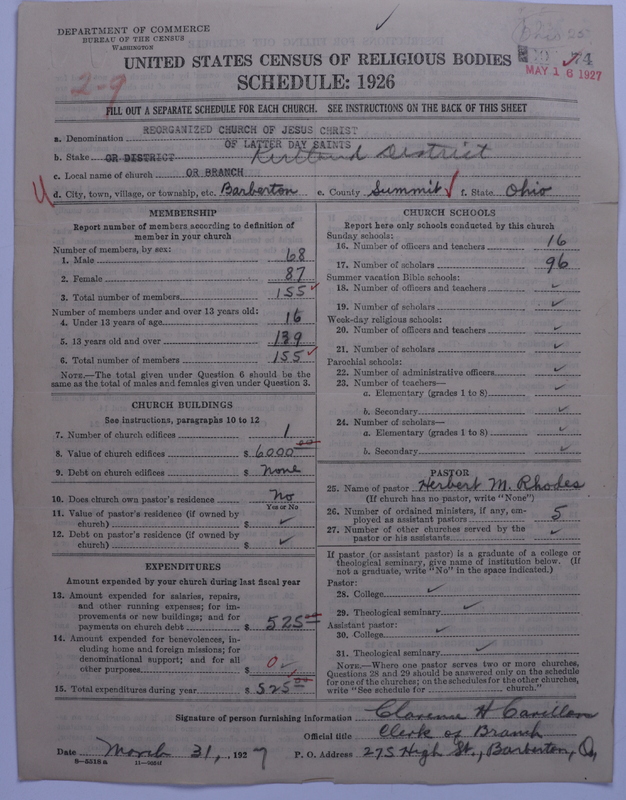 DEPARTMENT OF COMMERCE
BUREAU OF THE CENSUS
WASHINGTON
74
MAY 16 1927
UNITED STATES CENSUS OF RELIGIOUS BODIES
SCHEDULE: 1926
2-9
FILL OUT A SEPARATE SCHEDULE FOR EACH CHURCH. SEE INSTRUCTIONS ON THE BACK OF THIS SHEET
a. Denomination REORGANIZED CHURCH OF JESUS CHRIST
OF LATTER DAY SAINTS
b. Stake OR DISTRICT Kirtland District
c. Local name of church OR BRANCH
d. City, town, village, or township, etc. Barberton e. County Summit f. State Ohio
MEMBERSHIP
Report number of members according to definition of
member in your church
Number of members, by sex:
1. Male 68
2. Female 87
3. Total number of members 155
Number of members under and over 13 years old:
4. Under 13 years of age 16
5. 13 years old and over 139
6. Total number of members 155
NOTE.—The total given under Question 6 should be the
same as the total of males and females given under Question 3.
CHURCH BUILDINGS
See instructions, paragraphs 10 to 12
7. Number of church edifices 1
8. Value of church edifices $ 6000 00
9. Debt on church edifices $ None
10. Does church own pastor's residence No
Yes or No
11. Value of pastor's residence (if owned by
church) $ ✓
12. Debt on pastor's residence (if owned by
church) $ ✓
EXPENDITURES
Amount expended by your church during last fiscal year
13. Amount expended for salaries, repairs,
and other running expenses; for im-
provements or new buildings; and for
payments on church debt $ 525 00
14. Amount expended for benevolences, in-
cluding home and foreign missions; for
denominational support; and for all
other purposes $ 0 ✓
15. Total expenditures during year $ 525 00
CHURCH SCHOOLS
Report here only schools conducted by this church
Sunday schools:
16. Number of officers and teachers 16
17. Number of scholars 96
Summer vacation Bible schools:
18. Number of officers and teachers ✓
19. Number of scholars ✓
Week-day religious schools:
20. Number of officers and teachers ✓
21. Number of scholars ✓
Parochial schools:
22. Number of administrative officers ✓
23. Number of teachers—
a. Elementary (grades 1 to 8) ✓
b. Secondary ✓
24. Number of scholars—
a. Elementary (grades 1 to 8) ✓
b. Secondary ✓
PASTOR
25. Name of pastor Herbert M. Rhodes
(If church has no pastor, write "None")
26. Number of ordained ministers, if any, em-
ployed as assistant pastors 5
27. Number of other churches served by the
pastor or his assistants ✓
If pastor (or assistant pastor) is a graduate of a college or
theological seminary, give name of institution below. (If
not a graduate, write "No" in the space indicated.)
Pastor:
28. College ✓
29. Theological seminary ✓
Assistant pastor:
30. College ✓
31. Theological seminary ✓
NOTE.—Where one pastor serves two or more churches,
Questions 28 and 29 should be answered only on the schedule
for one of the churches; on the schedules for the other churches,
write "See schedule for church."
Signature of person furnishing information Clarence H
Official title Clerk of Branch
Date March 31, 1927 P. O. Address 275 High St., Barberton, O.
8-5518a 11-9024f